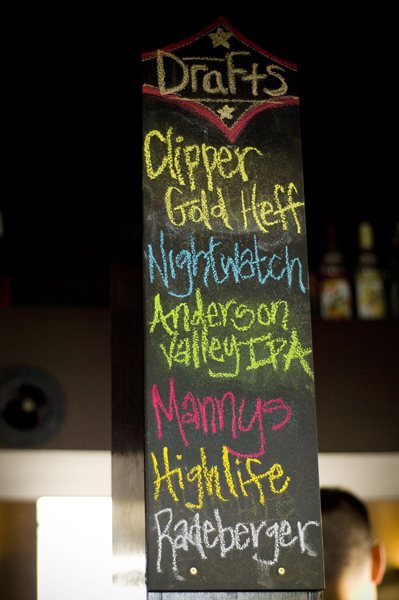 Drafts
Clipper
Gold Heff
Nightwatch
Anderson
Valley IPA
Mannys
Highlife
Radeberger